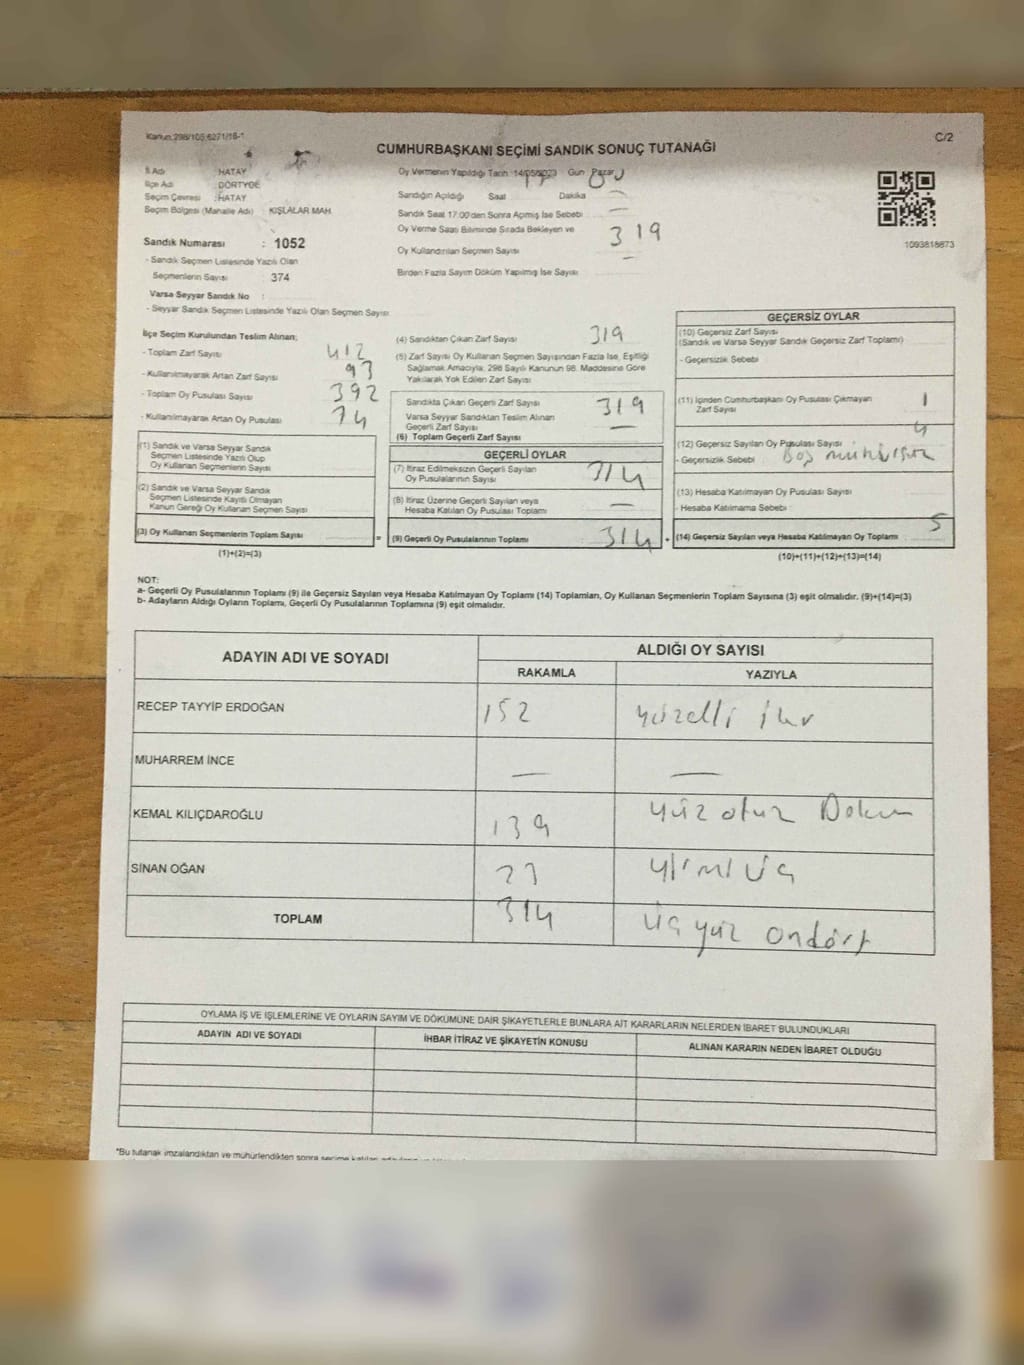 Kanun:298/105,6271/16-1
C/2
CUMHURBAŞKANI SEÇİMİ SANDIK SONUÇ TUTANAĞI
İl Adı : HATAY
İlçe Adı : DÖRTYOL
Seçim Çevresi : HATAY
Seçim Bölgesi (Mahalle Adı) : KIŞLALAR MAH.
Sandık Numarası : 1052
- Sandık Seçmen Listesinde Yazılı Olan
Seçmenlerin Sayısı : 374
Varsa Seyyar Sandık No :
- Seyyar Sandık Seçmen Listesinde Yazılı Olan Seçmen Sayısı
Oy Vermenin Yapıldığı Tarih :14/05/2023 Gün : Pazar
Sandığın Açıldığı Saat Dakika —
Sandık Saat 17:00'den Sonra Açılmış İse Sebebi —
Oy Verme Saati Bitiminde Sırada Bekleyen ve
Oy Kullandırılan Seçmen Sayısı 319
Birden Fazla Sayım Döküm Yapılmış İse Sayısı —
1093818873
İlçe Seçim Kurulundan Teslim Alınan;
- Toplam Zarf Sayısı 412
- Kullanılmayarak Artan Zarf Sayısı 93
- Toplam Oy Pusulası Sayısı 392
- Kullanılmayarak Artan Oy Pusulası 74
(1) Sandık ve Varsa Seyyar Sandık
Seçmen Listesinde Yazılı Olup
Oy Kullanan Seçmenlerin Sayısı
(2) Sandık ve Varsa Seyyar Sandık
Seçmen Listesinde Kayıtlı Olmayan
Kanun Gereği Oy Kullanan Seçmen Sayısı
(3) Oy Kullanan Seçmenlerin Toplam Sayısı =
(1)+(2)=(3)
(4) Sandıktan Çıkan Zarf Sayısı 319
(5) Zarf Sayısı Oy Kullanan Seçmen Sayısından Fazla İse, Eşitliği
Sağlamak Amacıyla, 298 Sayılı Kanunun 98. Maddesine Göre
Yakılarak Yok Edilen Zarf Sayısı
Sandıkta Çıkan Geçerli Zarf Sayısı 319
Varsa Seyyar Sandıktan Teslim Alınan
Geçerli Zarf Sayısı —
(6) Toplam Geçerli Zarf Sayısı
GEÇERLİ OYLAR
(7) İtiraz Edilmeksizin Geçerli Sayılan
Oy Pusulalarının Sayısı 314
(8) İtiraz Üzerine Geçerli Sayılan veya
Hesaba Katılan Oy Pusulası Toplamı —
(9) Geçerli Oy Pusulalarının Toplamı 314 +
GEÇERSİZ OYLAR
(10) Geçersiz Zarf Sayısı
(Sandık ve Varsa Seyyar Sandık Geçersiz Zarf Toplamı)
- Geçersizlik Sebebi
(11) İçinden Cumhurbaşkanı Oy Pusulası Çıkmayan
Zarf Sayısı 1
(12) Geçersiz Sayılan Oy Pusulası Sayısı : 4
- Geçersizlik Sebebi : Boş mühürsüz
(13) Hesaba Katılmayan Oy Pusulası Sayısı
- Hesaba Katılmama Sebebi
(14) Geçersiz Sayılan veya Hesaba Katılmayan Oy Toplamı 5
(10)+(11)+(12)+(13)=(14)
NOT:
a- Geçerli Oy Pusulalarının Toplamı (9) ile Geçersiz Sayılan veya Hesaba Katılmayan Oy Toplamı (14) Toplamları, Oy Kullanan Seçmenlerin Toplam Sayısına (3) eşit olmalıdır. (9)+(14)=(3)
b- Adayların Aldığı Oyların Toplamı, Geçerli Oy Pusulalarının Toplamına (9) eşit olmalıdır.
ADAYIN ADI VE SOYADI ALDIĞI OY SAYISI
RAKAMLA YAZIYLA
RECEP TAYYİP ERDOĞAN 152 yüzelli iki
MUHARREM İNCE — —
KEMAL KILIÇDAROĞLU 139 yüz otuz Dokuz
SİNAN OĞAN 23 yirmi üç
TOPLAM 314 üçyüz ondört
OYLAMA İŞ VE İŞLEMLERİNE VE OYLARIN SAYIM VE DÖKÜMÜNE DAİR ŞİKAYETLERLE BUNLARA AİT KARARLARIN NELERDEN İBARET BULUNDUKLARI
ADAYIN ADI VE SOYADI İHBAR İTİRAZ VE ŞİKAYETİN KONUSU ALINAN KARARIN NEDEN İBARET OLDUĞU
*Bu tutanak imzalandıktan ve mühürlendikten sonra seçime katılan